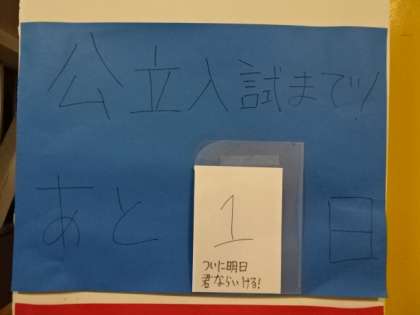 公立入試まで!
あと 1 日
ついに明日
君ならいける!